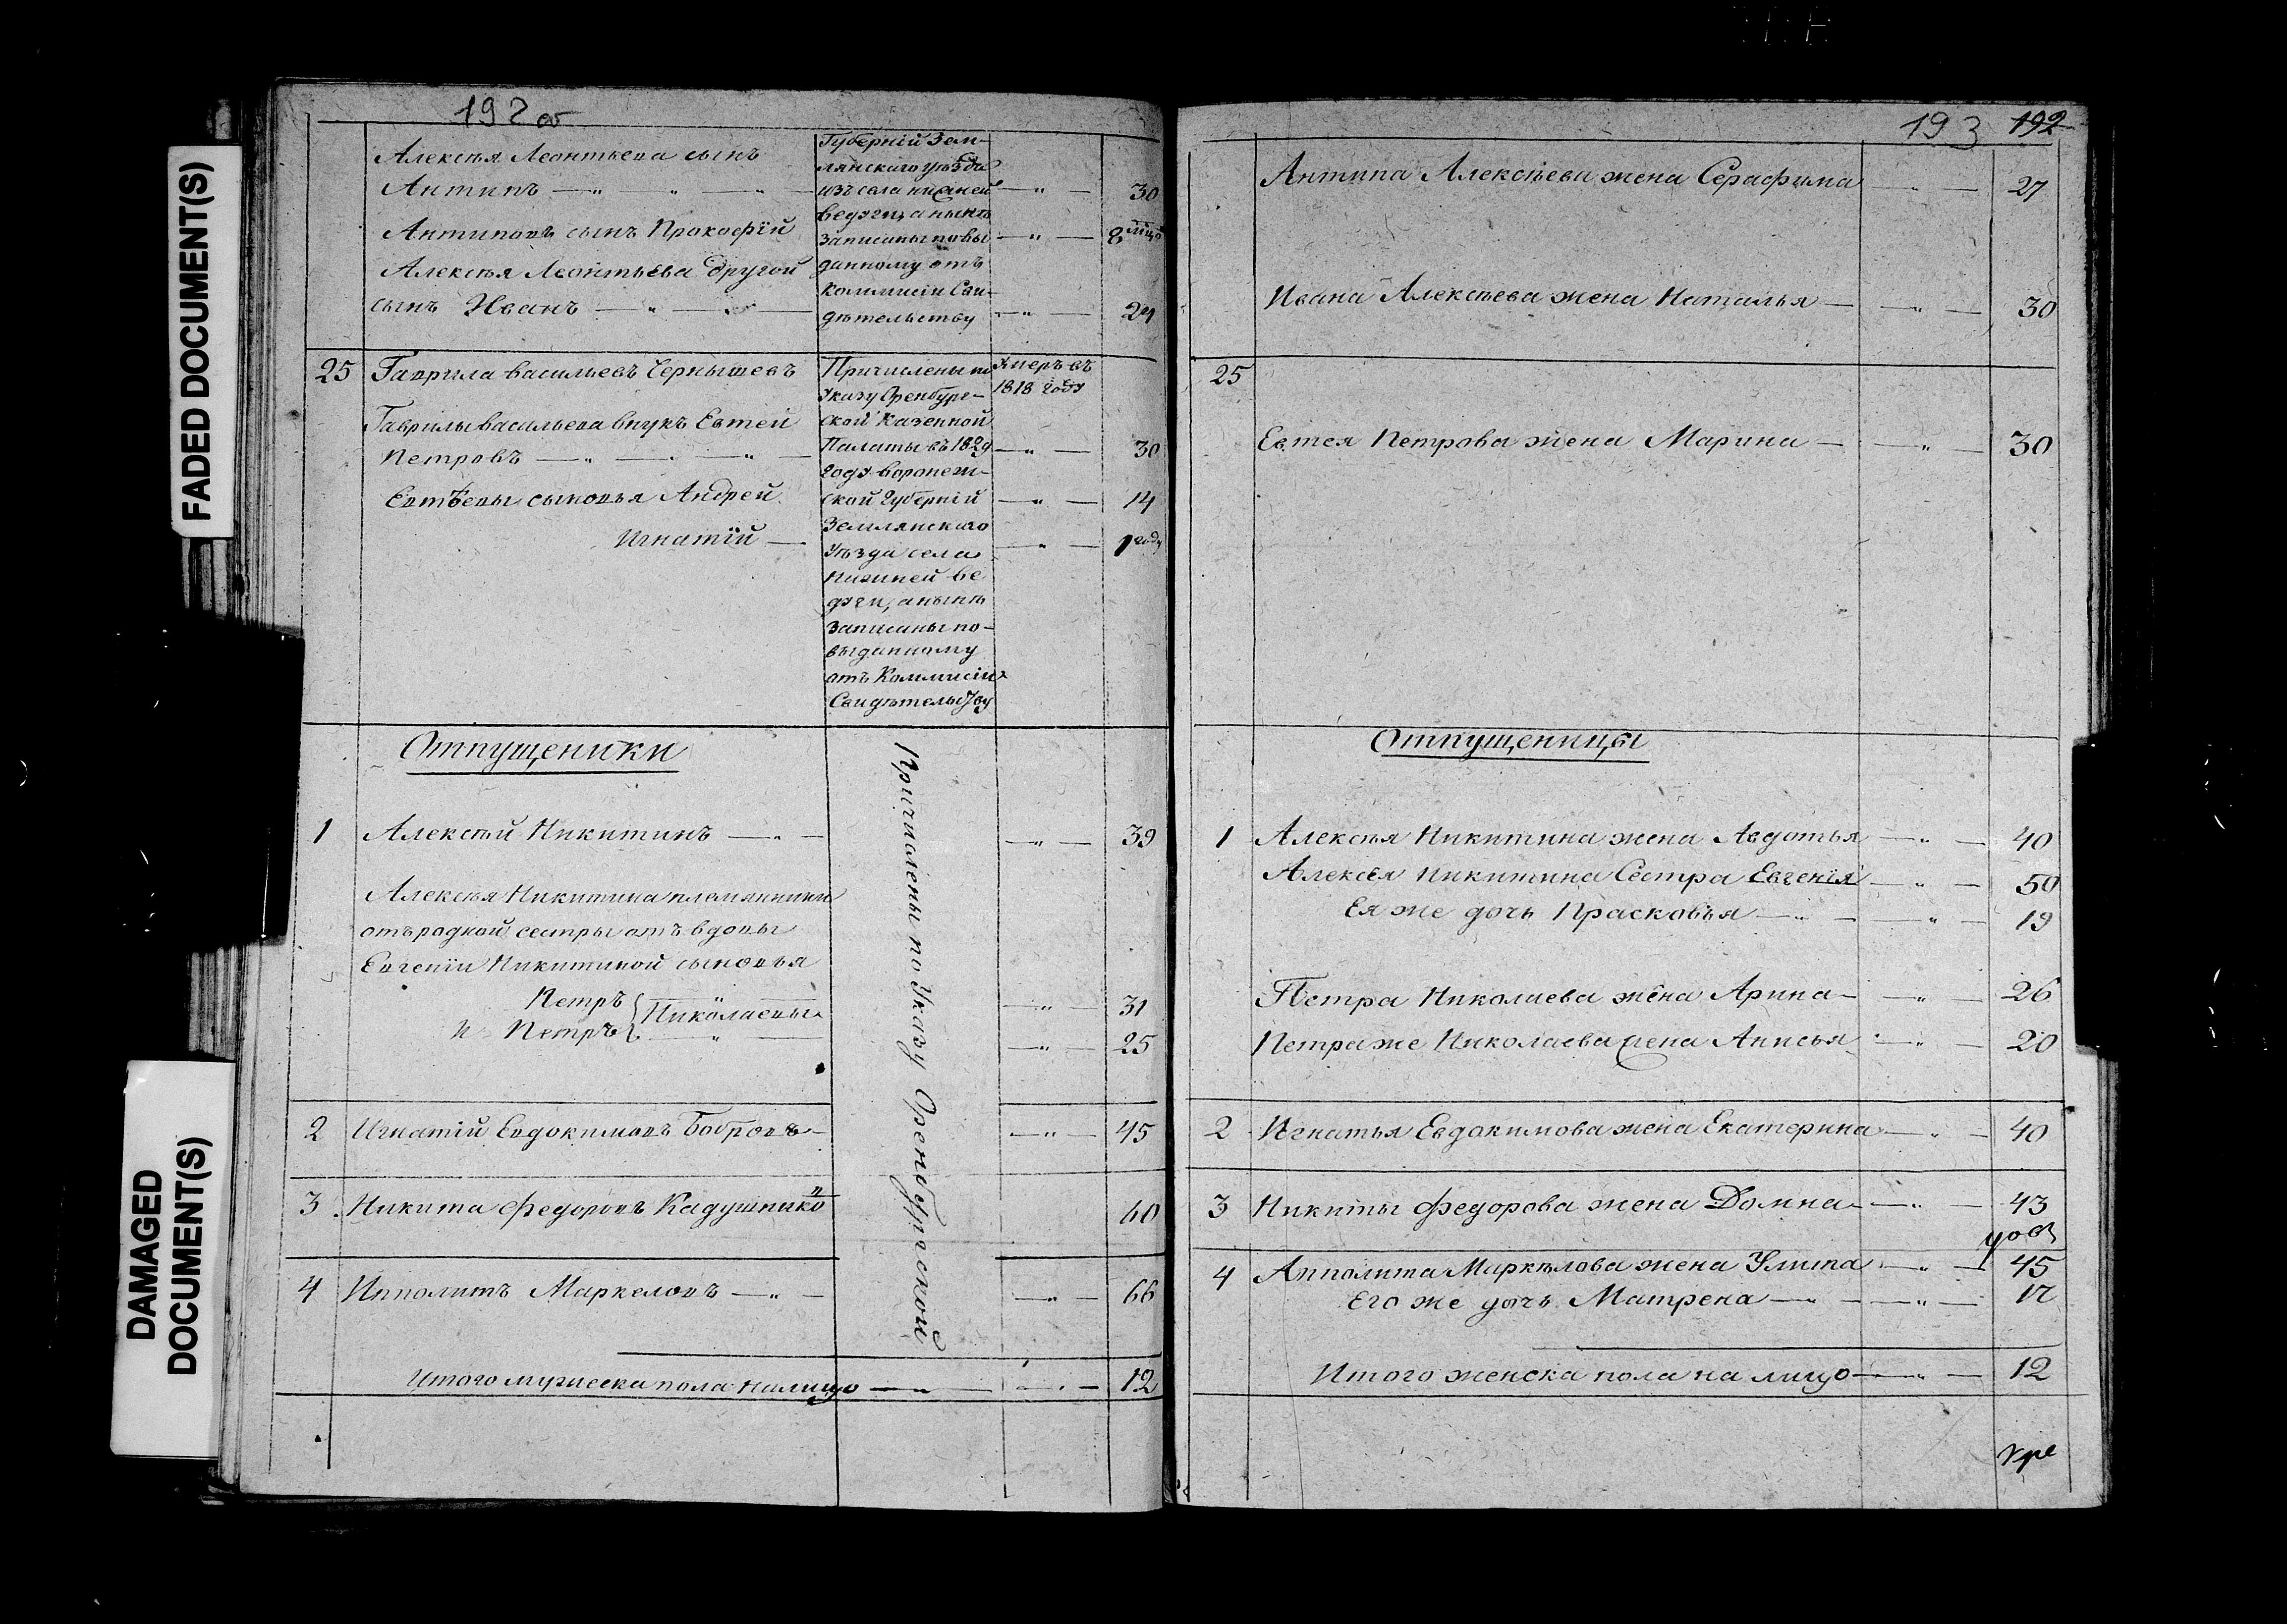 FADED DOCUMENT(S)
DAMAGED
DOCUMENT(S)
192 об
Алексѣя Леонтьева сынъ
Антипъ — " " — " — 30
Антиповъ сынъ Прокофій — " — 8
Алексѣя Леонтьева другой
сынъ Иванъ — " — " — 24
Губерній Зем-
лянскаго уѣзда
изъ села нижней
Ведуги, а нынѣ
записаны по вы
данному отъ
Коммисіи Сви-
дѣтельству
25 Гаврила Васильевъ Чернышевъ
Умеръ въ
1818 году
Гаврилы Васильева внукъ Евтей
Петровъ — " — " — " — 30
Евтѣевы сыновья Андрей — " — 14
Игнатій — " — 1 году
Причислены по
Указу Оренбург-
ской Казенной
Палаты въ 1829
году Воронеж-
ской Губерній
Землянскаго
Уѣзда села
Нижней Ве
дуги, а нынѣ
Записаны по-
выданному
отъ Коммисіи
Свидѣтельству
Отпущеники
Причислены по Указу Оренбургской
1 Алексѣй Никитинъ — " — — " — 39
Алексѣя Никитина племянники
отъ родной сестры отъ вдовы
Евгеніи Никитиной сыновья
Петръ — " — 31
Николаевы
и Петръ — " — 25
2 Игнатій Евдокимовъ Бобровъ — — " — 45
3 Никита Федоровъ Кадушнико в 60
4 Ипполитъ Маркеловъ — " — — " — 66
Итого мужеска пола налицо — " — 12
193 192
Антипа Алексѣева жена Серафима — " — 27
Ивана Алексѣева жена Наталья — — " — 30
25
Евтея Петрова жена Марина — — " — 30
Отпущеницы
1 Алексѣя Никитина жена Авдотья — " — 40
Алексѣя Никитина Сестра Евгенія — " — 50
Ея же дочь Прасковья — " — — " — 19
Петра Николаева жена Арина — — " — 26
Петра же Николаева жена Анисья — " — 20
2 Игнатья Евдокимова жена Екатерина — " — 40
3 Никиты Федорова жена Домна — — " — 43
4 Апполита Маркелова жена Улита — " — 45
Его же дочь Матрена — " — — " — 17
Итого женска пола на лицо — " — 12